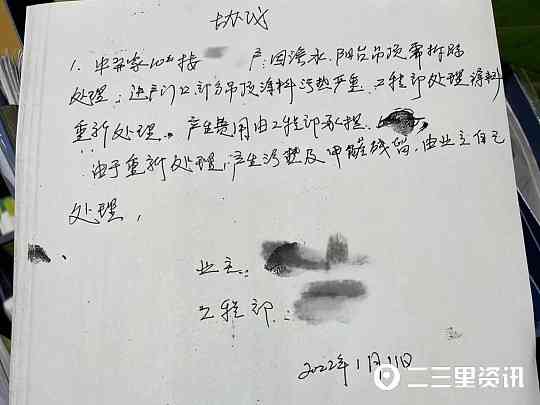 协议
1. 户:因渗水,阳台吊顶需拆除
处理;进户门口部分吊顶涂料污染严重,工程部处理涂料
重新处理。产生费用由工程部承担。
由于重新处理,产生污染及甲醛残留,由业主自己
处理,
业主:
工程部:
2022年1月11日
二三里资讯